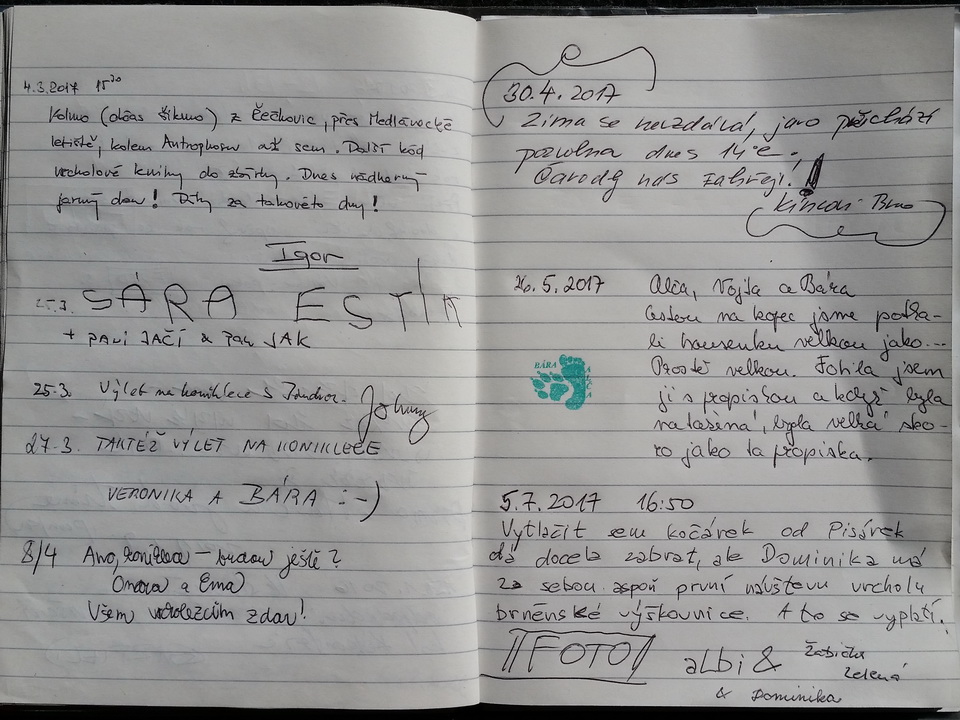 4.3.2017 15³⁰
Kolmo (občas šikmo) z Řečkovic, přes Medlánecké
letiště, kolem Antroposu až sem. Další kód
vrcholové knihy do sbírky. Dnes nádherný
jarný den! Díky za takovéto dny!
Igor
SÁRA ESTÍK
+ PANÍ JAČÍ & PAN JAK
25.3. Výlet na koniklece s
Johnny
27.3. TAKTÉŽ VÝLET NA KONIKLECE
VERONIKA A BÁRA :-)
8/4 Ano, koniklece – budou ještě?
a Ema
Všem vrcholezcům zdar!
30.4.2017
Zima se nevzdává, jaro přichází
pozvolna dnes 14°C.
Čarody nás zahřejí!
Brno
26.5.2017 Alča, Vojta a Bára
Cestou na kopec jsme potka-
li housenku velkou jako...
Prostě velkou. Fotila jsem
ji s propiskou a když byla
natažená, byla velká sko-
ro jako ta propiska.
BÁRA
5.7.2017 16:50
Vytlačit sem kočárek od Pisárek
dá docela zabrat, ale Dominika má
za sebou aspoň první návštěvu vrcholu
brněnské výškovnice. A to se vyplatí.
FOTO
albi & Žabička
Zelená
& Dominika